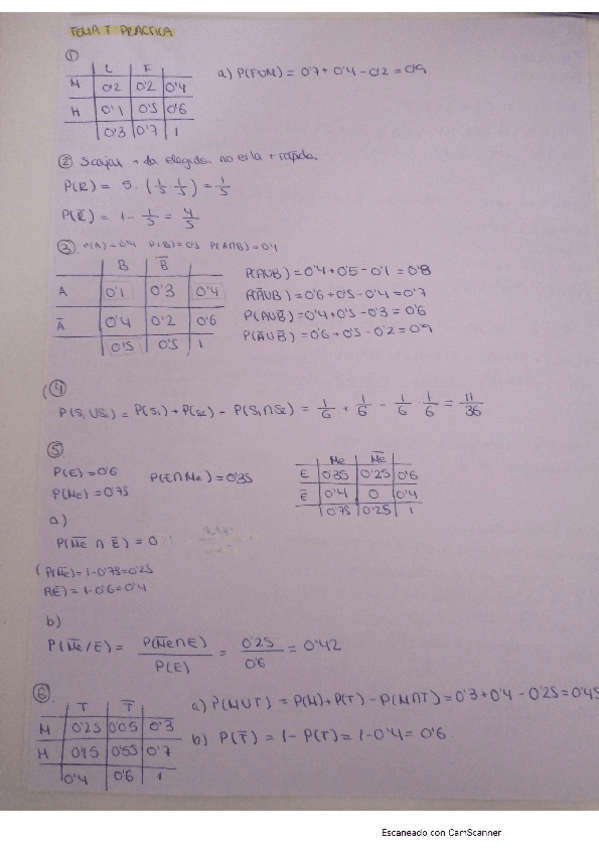 TEMA 7 PRACTICA
①
L F
M 0'2 0'2 0'4
H 0'1 0'5 0'6
0'3 0'7 1
a) P(FUM) = 0'7 + 0'4 - 0'2 = 0'9
② 5 cajeu + da elegida no es la + rapida.
P(R) = 5 · (1/5 · 1/5) = 1/5
P(R̅) = 1 - 1/5 = 4/5
③ P(A) = 0'4 P(B) = 0'5 P(A∩B) = 0'1
B B̅
A 0'1 0'3 0'4
A̅ 0'4 0'2 0'6
0'5 0'5 1
P(AUB) = 0'4 + 0'5 - 0'1 = 0'8
P(A̅UB) = 0'6 + 0'5 - 0'4 = 0'7
P(AUB̅) = 0'4 + 0'5 - 0'3 = 0'6
P(A̅UB̅) = 0'6 + 0'5 - 0'2 = 0'9
④
P(S₁US₂) = P(S₁) + P(S₂) - P(S₁∩S₂) = 1/6 + 1/6 - 1/6 · 1/6 = 11/36
⑤
P(E) = 0'6 P(E∩Me) = 0'35
P(Me) = 0'75
Me M̅e̅
E 0'35 0'25 0'6
E̅ 0'4 0 0'4
0'75 0'25 1
a)
P(M̅e̅ ∩ E̅) = 0
(P(M̅e̅) = 1 - 0'75 = 0'25
P(E̅) = 1 - 0'6 = 0'4
b)
P(M̅e̅/E) = P(M̅e̅∩E)/P(E) = 0'25/0'6 = 0'42
⑥
T T̅
M 0'25 0'05 0'3
H 0'15 0'55 0'7
0'4 0'6 1
a) P(MUT) = P(M) + P(T) - P(M∩T) = 0'3 + 0'4 - 0'25 = 0'45
b) P(T̅) = 1 - P(T) = 1 - 0'4 = 0'6.
Escaneado con CamScanner